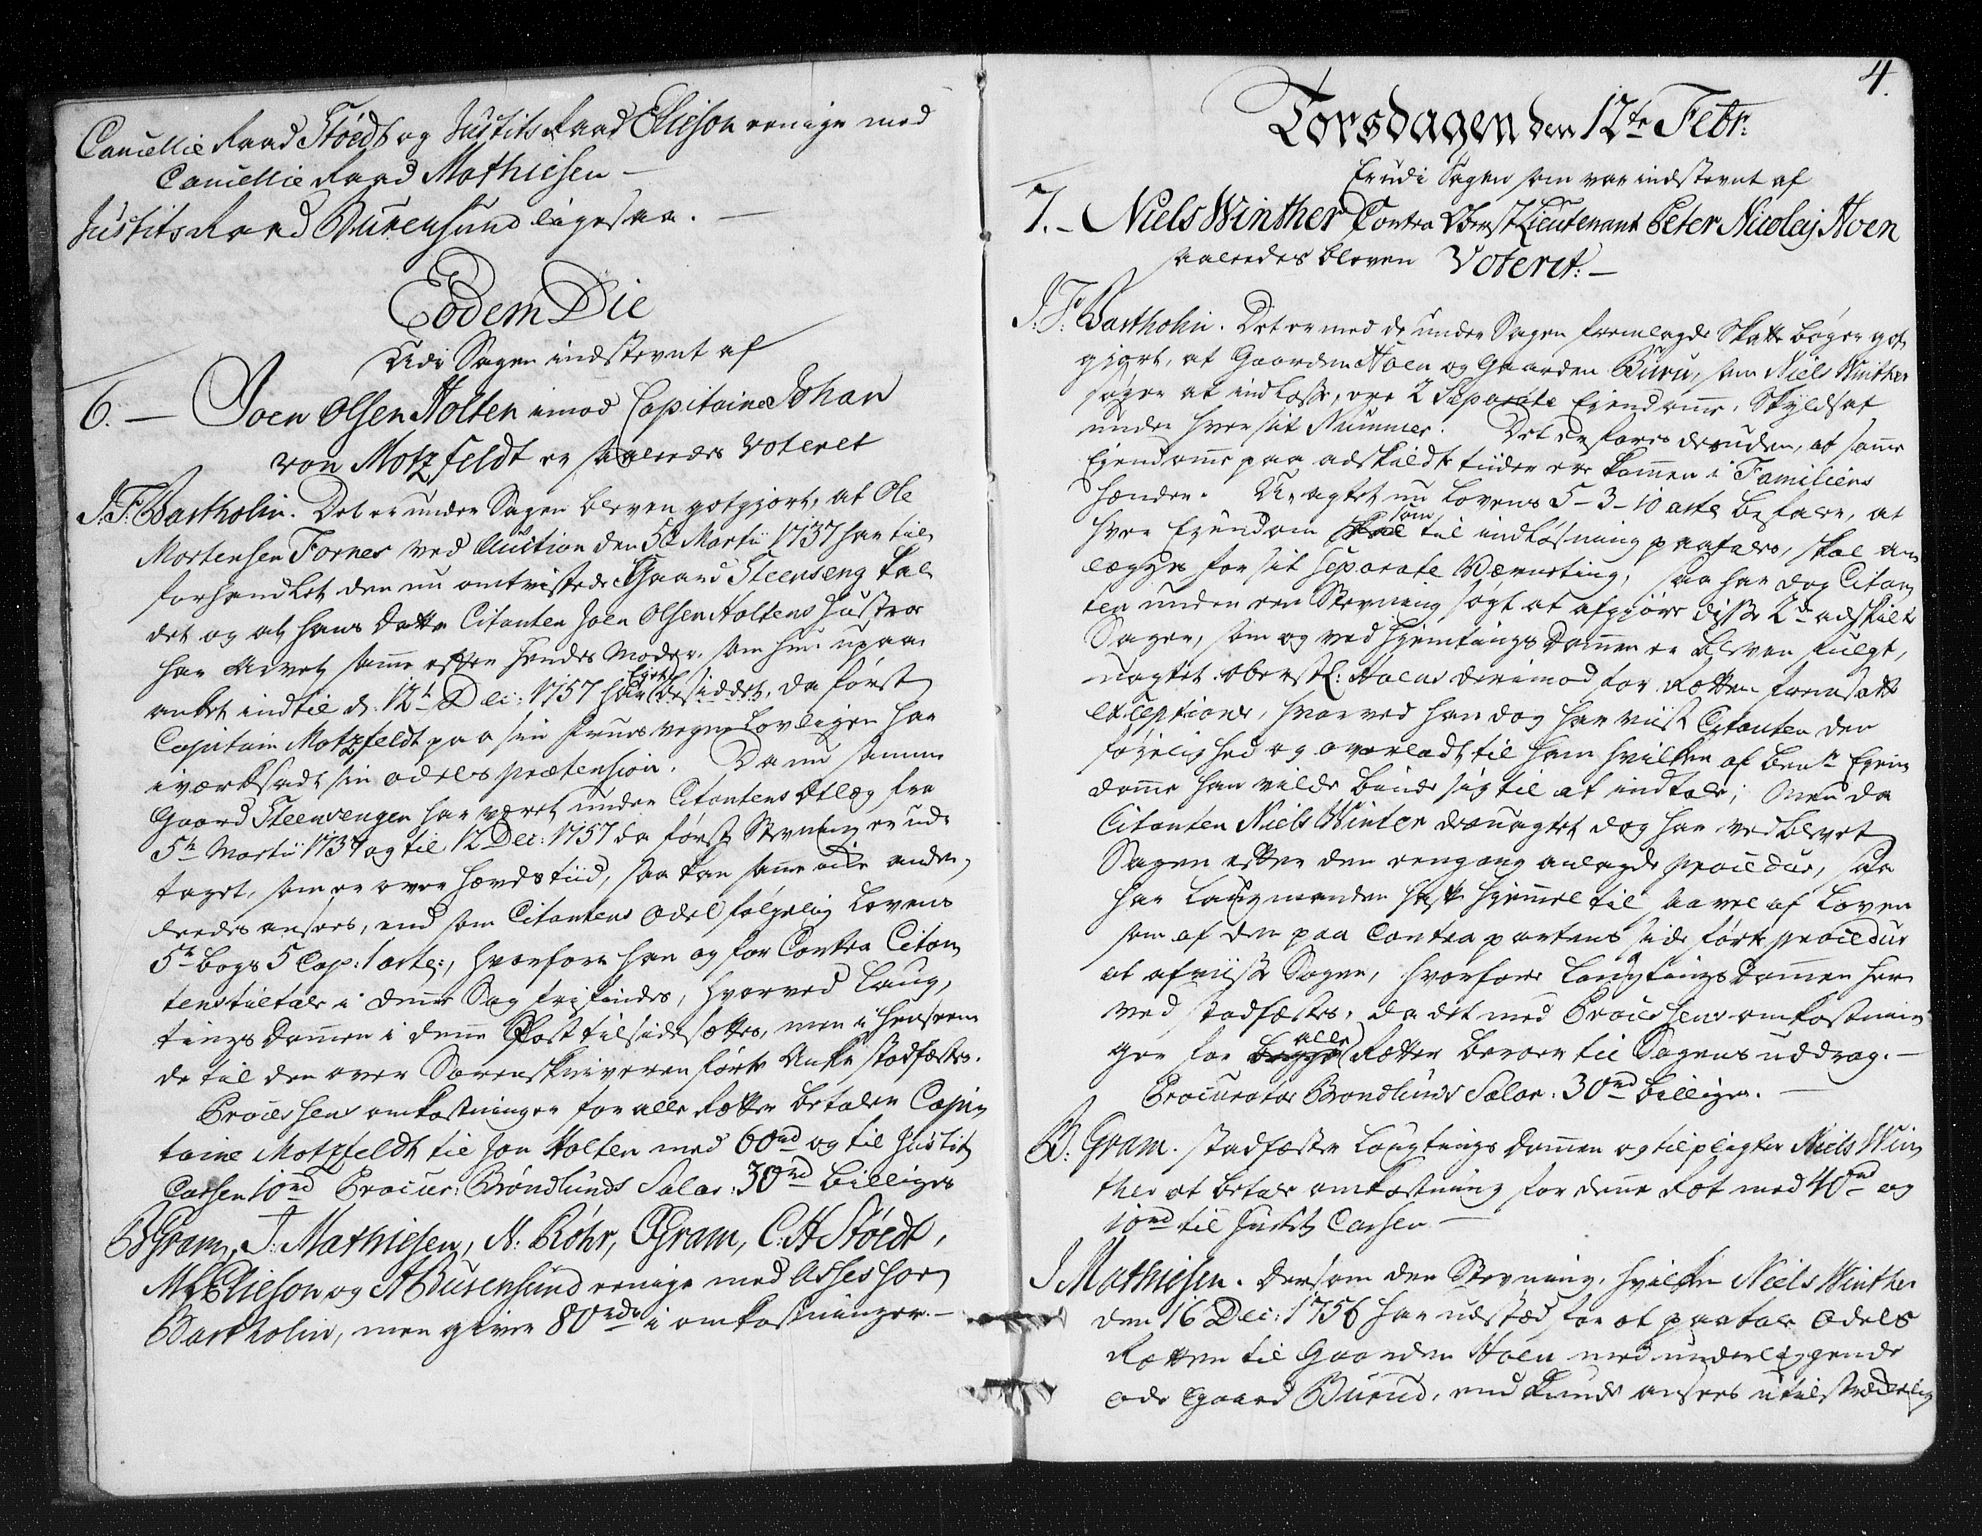 Cancellie Raad Støedt og Justits Raad Elieson eenige med
Cancellie Raad Mathiesen —
Justits Raad Burensund ligesaa. —
Eodem Die
Udi Sagen indstevnt af
6. — Joen Olsen Holten imod Capitaine Johan
von Motzfeldt er saaledes Voteret
J. F. Bartholin. Det er under Sagen bleven gotgjort, at Ole
Mortensen Fornes ved Auction den 5te Martii 1737 har til
forhandlet den nu omtvistede Gaard Steenseng kal
det og at hans Datter Citanten Joen Olsen Holtens Hustroe
har Arvet samme efter hendes Moder, som hun upaa
anket indtil d. 12te Dec: 1757 har Eyet besiddet, da først
Capitain Motzfeldt paa sin Frues vegne Lovligen har
iværksadt sin odels prætension. Da nu samme
Gaard Steensengen har været under Citantens Odlæg fra
5te Martii 1737 og til 12 Dec: 1757 da først Stevning er ud-
taget, som er over Hævds tiid, saa kan samme icke ander-
leedes ansees, end som Citantens Odel følgelig Lovens
5te bogs 5 Cap: 1 arte:, hvorfore han og for Contra Citan
tens tiltale i denne Sag frifindes, hvorved Laug-
tings Dommen i denne Post tilsidesættes, men i henseen
de til den over Sorenskriveren førte Anke stadfæstes.
Processens omkostninger for alle Retter betaler Capi-
taine Motzfeldt til Jon Holten med 60rd og til Justits
Carsen 10rd Procur: Brøndlunds Salar: 30rd billiges
B Gram, J. Mathiesen, N: Røhr, O Gram, C. H Støedt,
M L Elieson og A Burensund eenige med Assessor
Bartholin, men giver 80rdr i omkostninger. —
4.
Torsdagen den 12te Febr:
Er udi Sagen som var indstevnt af
7. — Niels Winther Contra Oberst Lieutenant Peter Nicolaj Hoen
saaledes bleven Voteret: —
J. F. Bartholin. Det er med de under Sagen fremlagde Skatte bøger got
gjort, at Gaarden Hoen og Gaarden Buru, som Niels Winther
søger at indløse, ere 2 Separate Ejendomme, Skyldsat
under hver sit Nummer. Det erfares desuden, at samme
Ejendomme paa adskildte tiider ere kommen i Familiens
hænder. Uagtet nu Lovens 5-3-10 arte befaler, at
hver Ejendom som til indløsning paatales, skal an
lægges for sit Separate Værneting, saa har dog Citan
ten under een Stevning søgt at afgjøre disse 2de adskilte
Sager, som og ved Hjemtings Dommen er bleven fulgt,
uagtet Oberstl: Hoens derimod for Retten fremsatte
exceptioner, hvorved han dog har viist Citanten den
føjelighed og overladt til ham hvilken af bemte Ejen
domme han vilde binde sig til at indtale; Men da
Citanten Niels Winter desuagtet dog har vedblevet
Sagen efter den eengang anlagde procedur, saa
har Laugmanden haft hjemmel til saavel af Loven
som af den paa Contra partens side førte procedur
at afviise Sagen, hvorfore Laugtings Dommen her
ved stadfæstes, da det med Processens omkostnin
ger for alle Retter beroer til Sagens uddrag. —
Procurator Brøndlunds Salar: 30rd billiges. —
B: Gram. stadfæster Laugtings Dommen og tilpligter Niels Win
ther at betale omkostning for denne Ret med 40rd og
10rd til Justits Carsen —
J Mathiesen. Dersom den Stevning, hvilken Niels Winther
den 16 Dec: 1756 har udstæd for at paatale Odels
Retten til Gaarden Hoen med underliggende
øde Gaard Burud, end kunde ansees utilstrækkelig